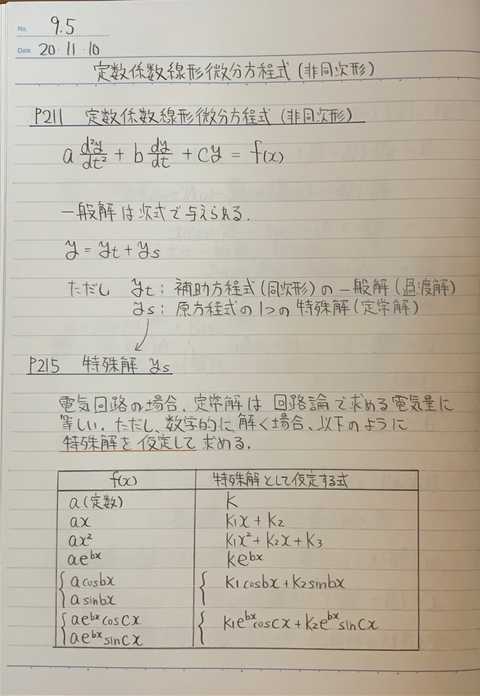 No. 9.5
Date 20・11・10
定数係数線形微分方程式(非同次形)
P211 定数係数線形微分方程式(非同次形)
a d²y/dt² + b dy/dt + cy = f(x)
一般解は次式で与えられる.
y = yt + ys
ただし yt : 補助方程式(同次形)の一般解(過渡解)
ys : 原方程式の1つの特殊解(定常解)
P215 特殊解 ys
電気回路の場合、定常解は回路論で求める電気量に
等しい. ただし、数学的に解く場合、以下のように
特殊解を仮定して求める.
f(x) 特殊解として仮定する式
a(定数) K
ax K1x + K2
ax² K1x² + K2x + K3
ae^bx Ke^bx
{ a cosbx { K1 cosbx + K2 sinbx
a sinbx
{ ae^bx cosCx { K1e^bx cosCx + K2e^bx sinCx
ae^bx sinCx